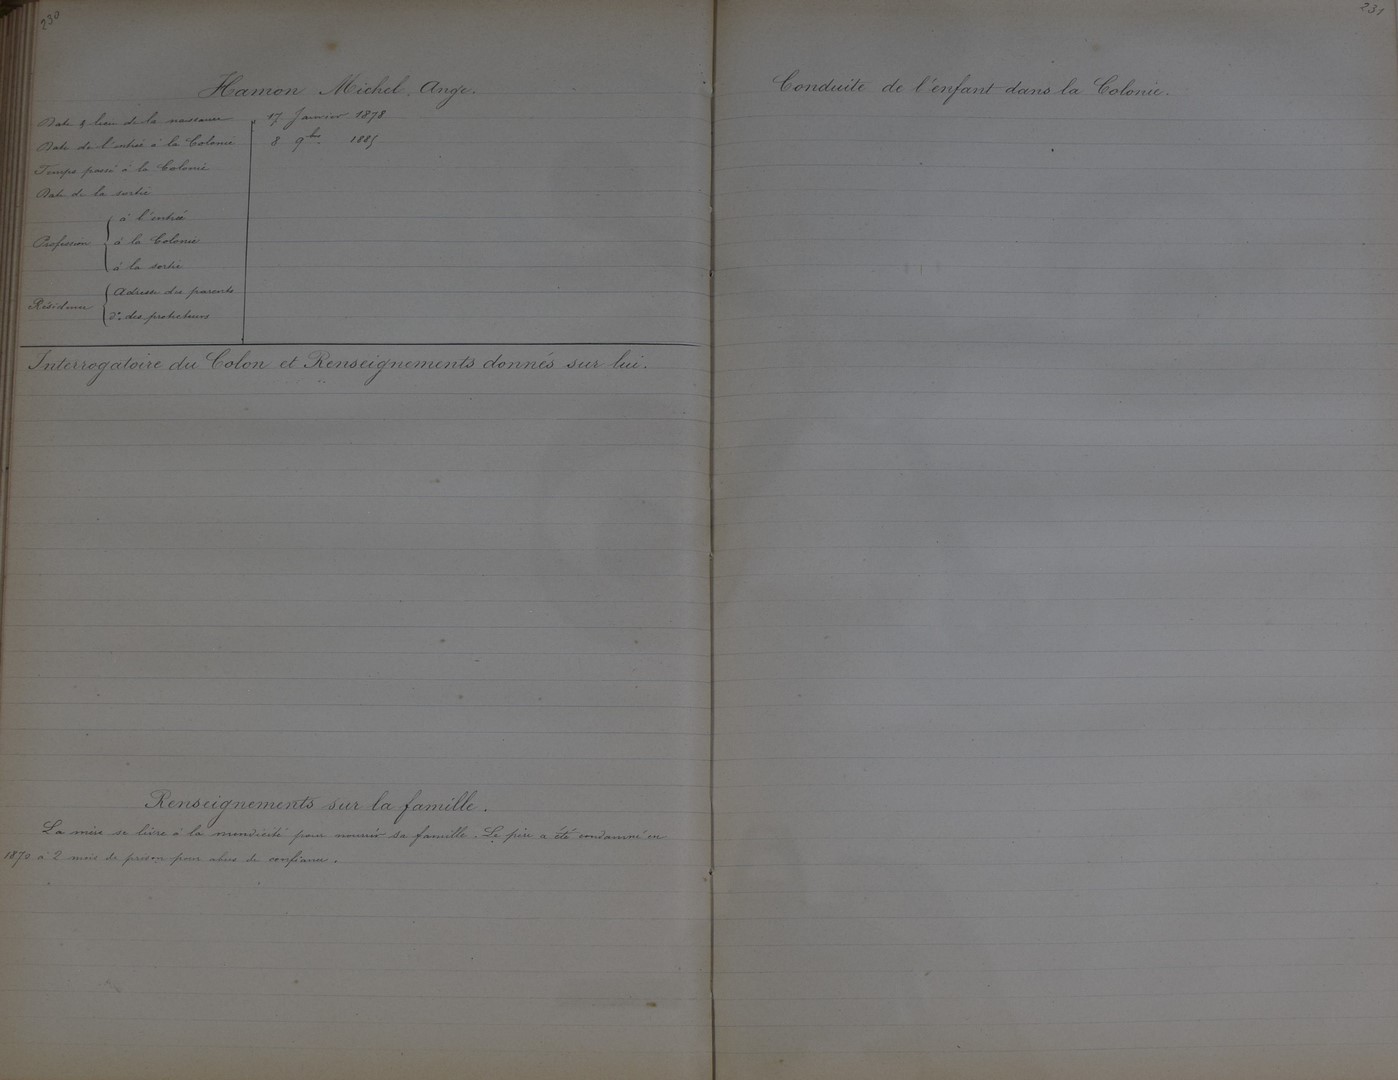 230
Hamon Michel. Ange.
Date & lieu de la naissance 17 Janvier 1878
Date de l'entrée à la Colonie 8 9bre 1885
Temps passé à la Colonie
Date de la sortie
Profession à l'entrée
à la Colonie
à la sortie
Résidence Adresse des parents
do des protecteurs
Interrogatoire du Colon et Renseignements donnés sur lui.
Renseignements sur la famille.
La mère se livre à la mendicité pour nourrir sa famille. Le père a été condamné en
1870 à 2 mois de prison pour abus de confiance.
231
Conduite de l'enfant dans la Colonie.